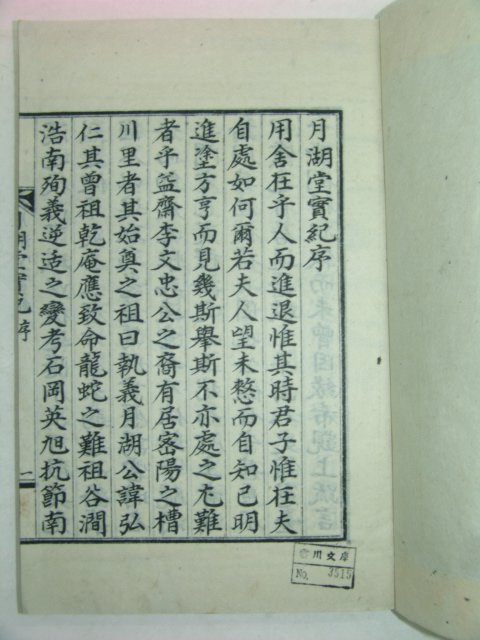 月湖堂實紀序
用舍在乎人而進退惟其時君子惟在夫
自處如何爾若夫人望未憖而自知已明
進塗方亨而見幾斯擧斯不亦處之尢難
者乎益齋李文忠公之裔有居密陽之槽
川里者其始奠之祖曰執義月湖公諱弘
仁其曾祖乾庵應致命龍蛇之難祖谷澗
浩南殉義逆适之變考石岡英旭抗節南
月湖堂實紀序 一
川文庫
No. 3515